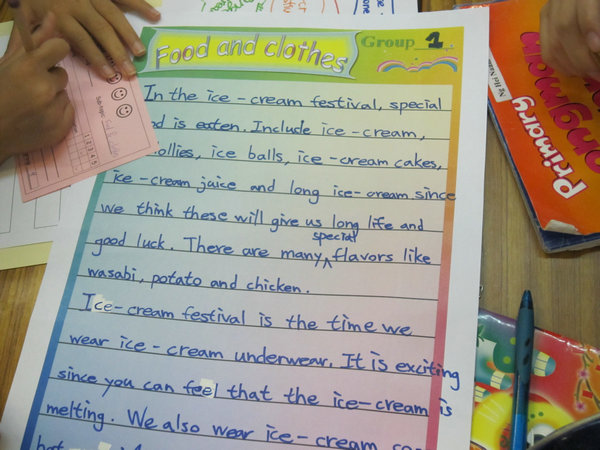 Food and clothes
Group 1
In the ice-cream festival, special
is eaten. Include ice-cream,
ice balls, ice-cream cakes,
ice-cream juice and long ice-cream since
we think these will give us long life and
special
good luck. There are many flavors like
wasabi, potato and chicken.
Ice-cream festival is the time we
wear ice-cream underwear. It is exciting
since you can feel that the ice-cream is
melting. We also wear ice-cream
Primary
Longman
1 2 3 4 5